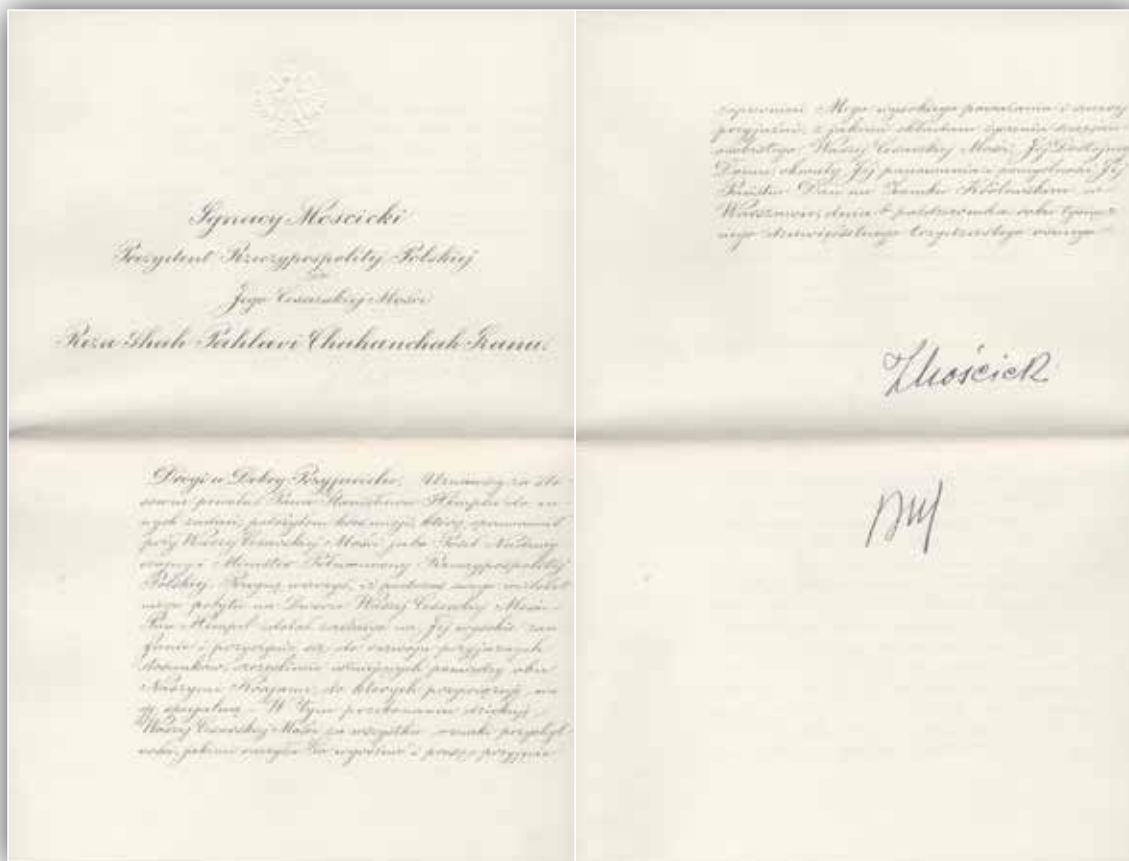 Ignacy Mościcki
Prezydent Rzeczypospolitej Polskiej
do
Jego Cesarskiej Mości
Reza Shah Pahlavi Chahanchah Iranu.
Drogi i Dobry Przyjacielu. Uznawszy za sto-
sowne powołać Pana Stanisława Hempla do in-
nych zadań, położyłem kres misji, którą sprawował
przy Waszej Cesarskiej Mości jako Poseł Nadzwy-
czajny i Minister Pełnomocny Rzeczypospolitej
Polskiej. Pragnę wierzyć, iż podczas swego
pobytu na Dworze Waszej Cesarskiej Mości
Pan Hempel zdołał zasłużyć na Jej wysokie zau-
fanie i przyczynić się do rozwoju przyjaznych
stosunków, szczęśliwie istniejących pomiędzy obu
Naszymi Krajami, do których przywiązuję wa-
gę specjalną. W tym przekonaniu dziękuję
Waszej Cesarskiej Mości za wszystkie oznaki przychyl-
ności, jakimi raczyła Go i proszę przyjąć
zapewnienie Mego wysokiego poważania i szczerej
przyjaźni, z jakimi składam życzenia szczęścia
osobistego Waszej Cesarskiej Mości, Jej Dostojnego
Domu, chwały Jej panowania i pomyślności Jej
Państw. Dan na Zamku Królewskim w
Warszawie, dnia 4 października roku tysiącz-
nego dziewięćsetnego trzydziestego ósmego
I Mościcki